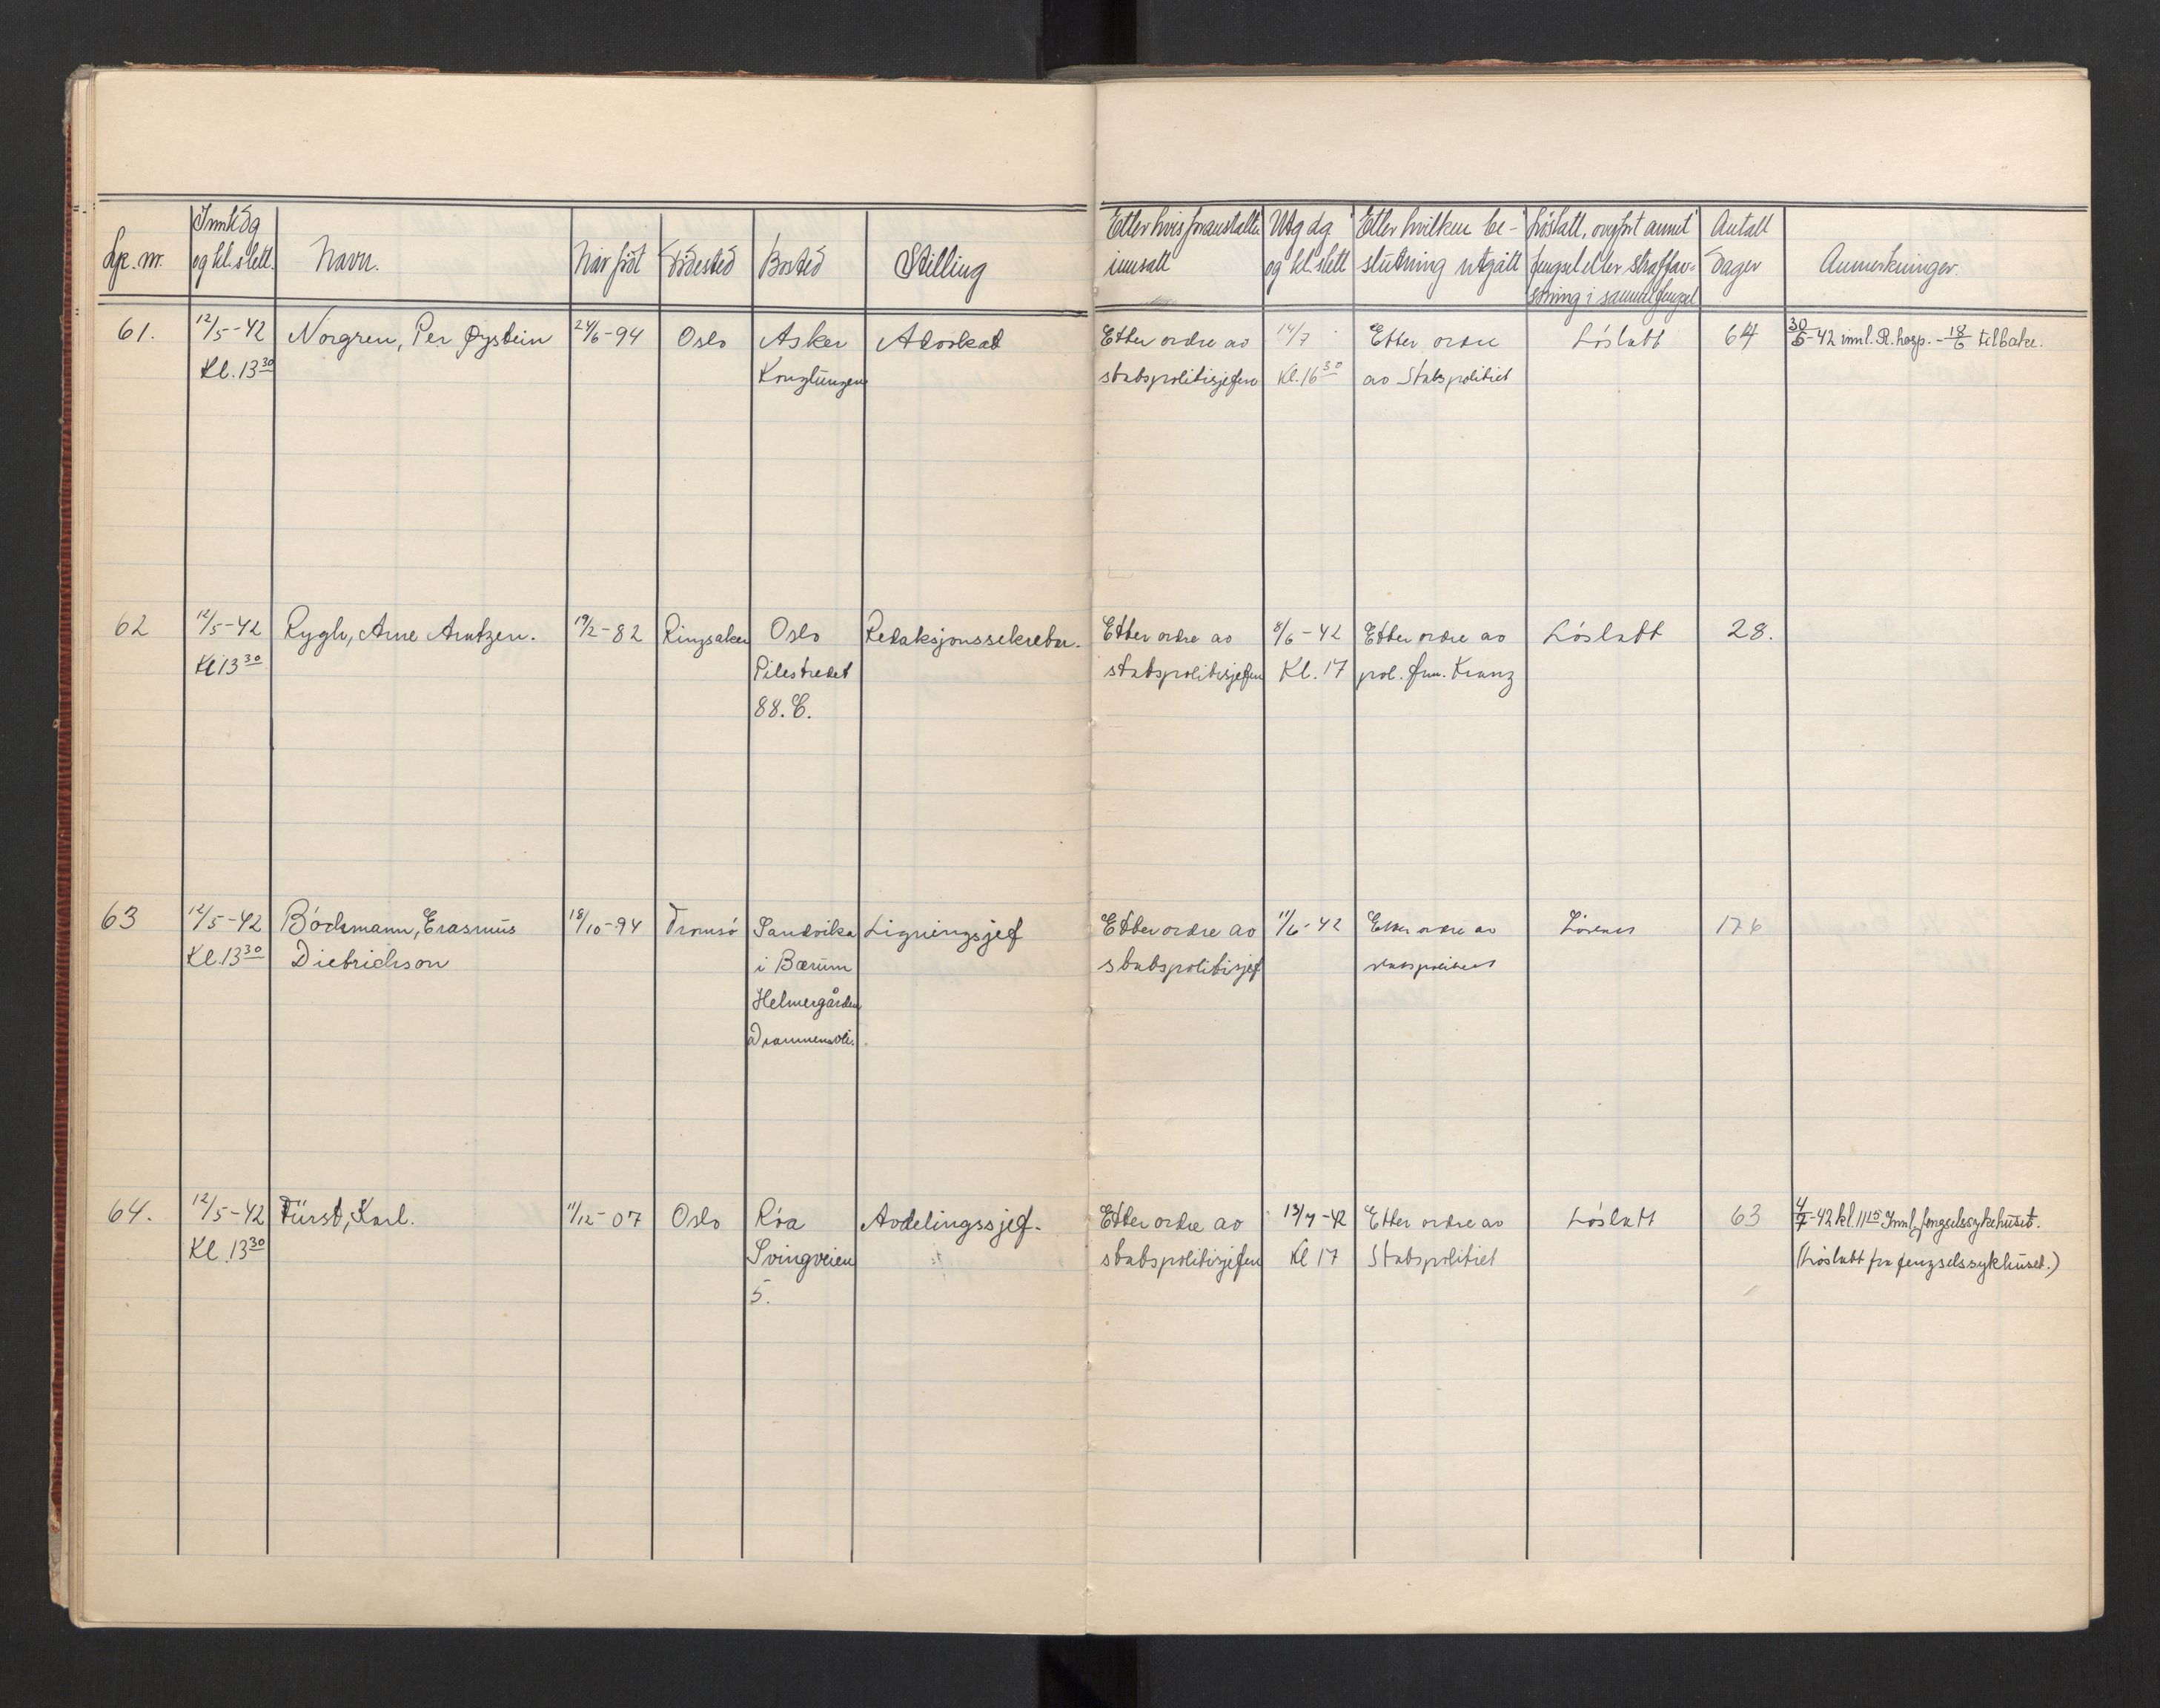 Lp. nr. Innk dag og kl. slett. Navn. Når föt Födested Bosted Stilling
Etter hvis foranstalt. innsatt Utg dg og kl. slett Etter hvilken be- slutning utgått Löslatt, overfört annet fengsel eller straffav- soning i samme fengsel Antall Dager Anmerkninger.
61. 12/5-42 Norgren, Per Øystein 24/6-94 Oslo Asker Advokat Etter ordre av 14/7 Etter ordre Löslatt 64 30/5-42 innl. R. hosp. - 18/6 tilbake.
Kl. 13 30 Konglungen statspolitisjefen Kl. 16 30 av Statspolitiet
62 12/5-42 Rygh, Arne Arntzen. 19/2-82 Ringsaker Oslo Redaksjonssekretær. Etter ordre av 8/6-42 Etter ordre av Löslatt 28.
Kl 13 30 Pilestredet statspolitisjefen Kl. 17 pol. fm. Kranz
88. C.
63 12/5-42 Böckmann, Erasmus 18/10-94 Tromsö Sandvika Ligningsjef Etter ordre av 11/6-42 Etter ordre av 176
Kl. 13 30 Dietrichson i Bærum statspolitisjef statspolitiet
Helmergården
Drammensvei.
64. 12/5-42 Fürst, Karl. 11/12-07 Oslo Röa Avdelingssjef. Etter ordre av 13/7-42 Etter ordre av Löslatt 63 4/7-42 kl. 11 15 Innl. fengselssykehuset.
Kl. 13 30 Svingveien statspolitisjefen Kl 17 Statspolitiet (Löslatt fra fengselssykhuset.)
5.